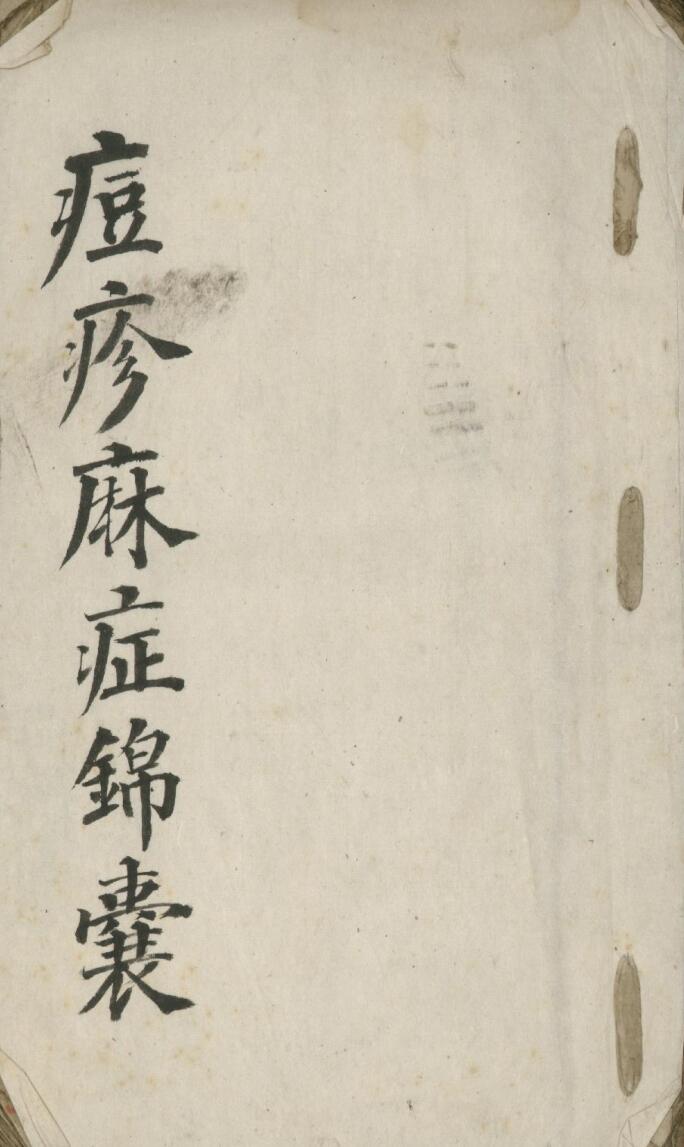 痘疹麻症錦囊